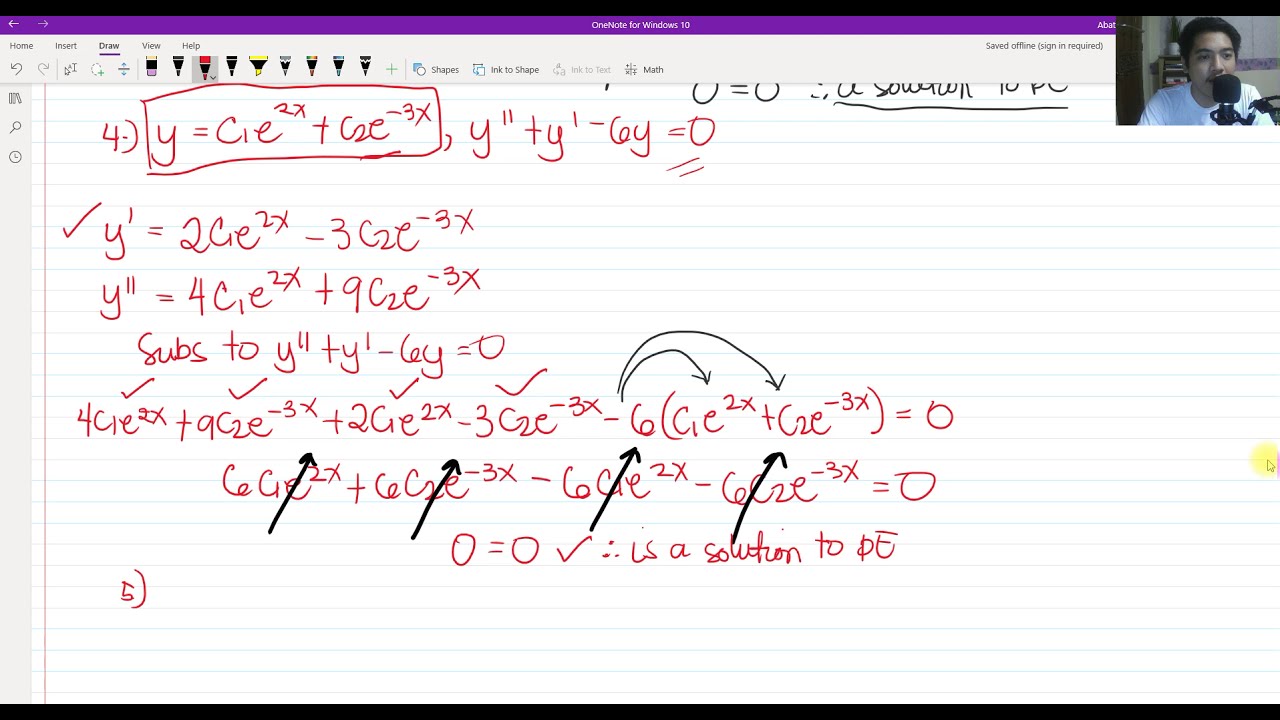 OneNote for Windows 10
Abat
Home Insert Draw View Help
Saved offline (sign in required)
Shapes Ink to Shape Ink to Text Math
0 = 0 ∴ a solution to DE
4.) y = C₁e^2x + C₂e^-3x, y'' + y' - 6y = 0
y' = 2C₁e^2x - 3C₂e^-3x
y'' = 4C₁e^2x + 9C₂e^-3x
Subs to y'' + y' - 6y = 0
4C₁e^2x + 9C₂e^-3x + 2C₁e^2x - 3C₂e^-3x - 6(C₁e^2x + C₂e^-3x) = 0
6C₁e^2x + 6C₂e^-3x - 6C₁e^2x - 6C₂e^-3x = 0
0 = 0 ✓ ∴ is a solution to DE
5)